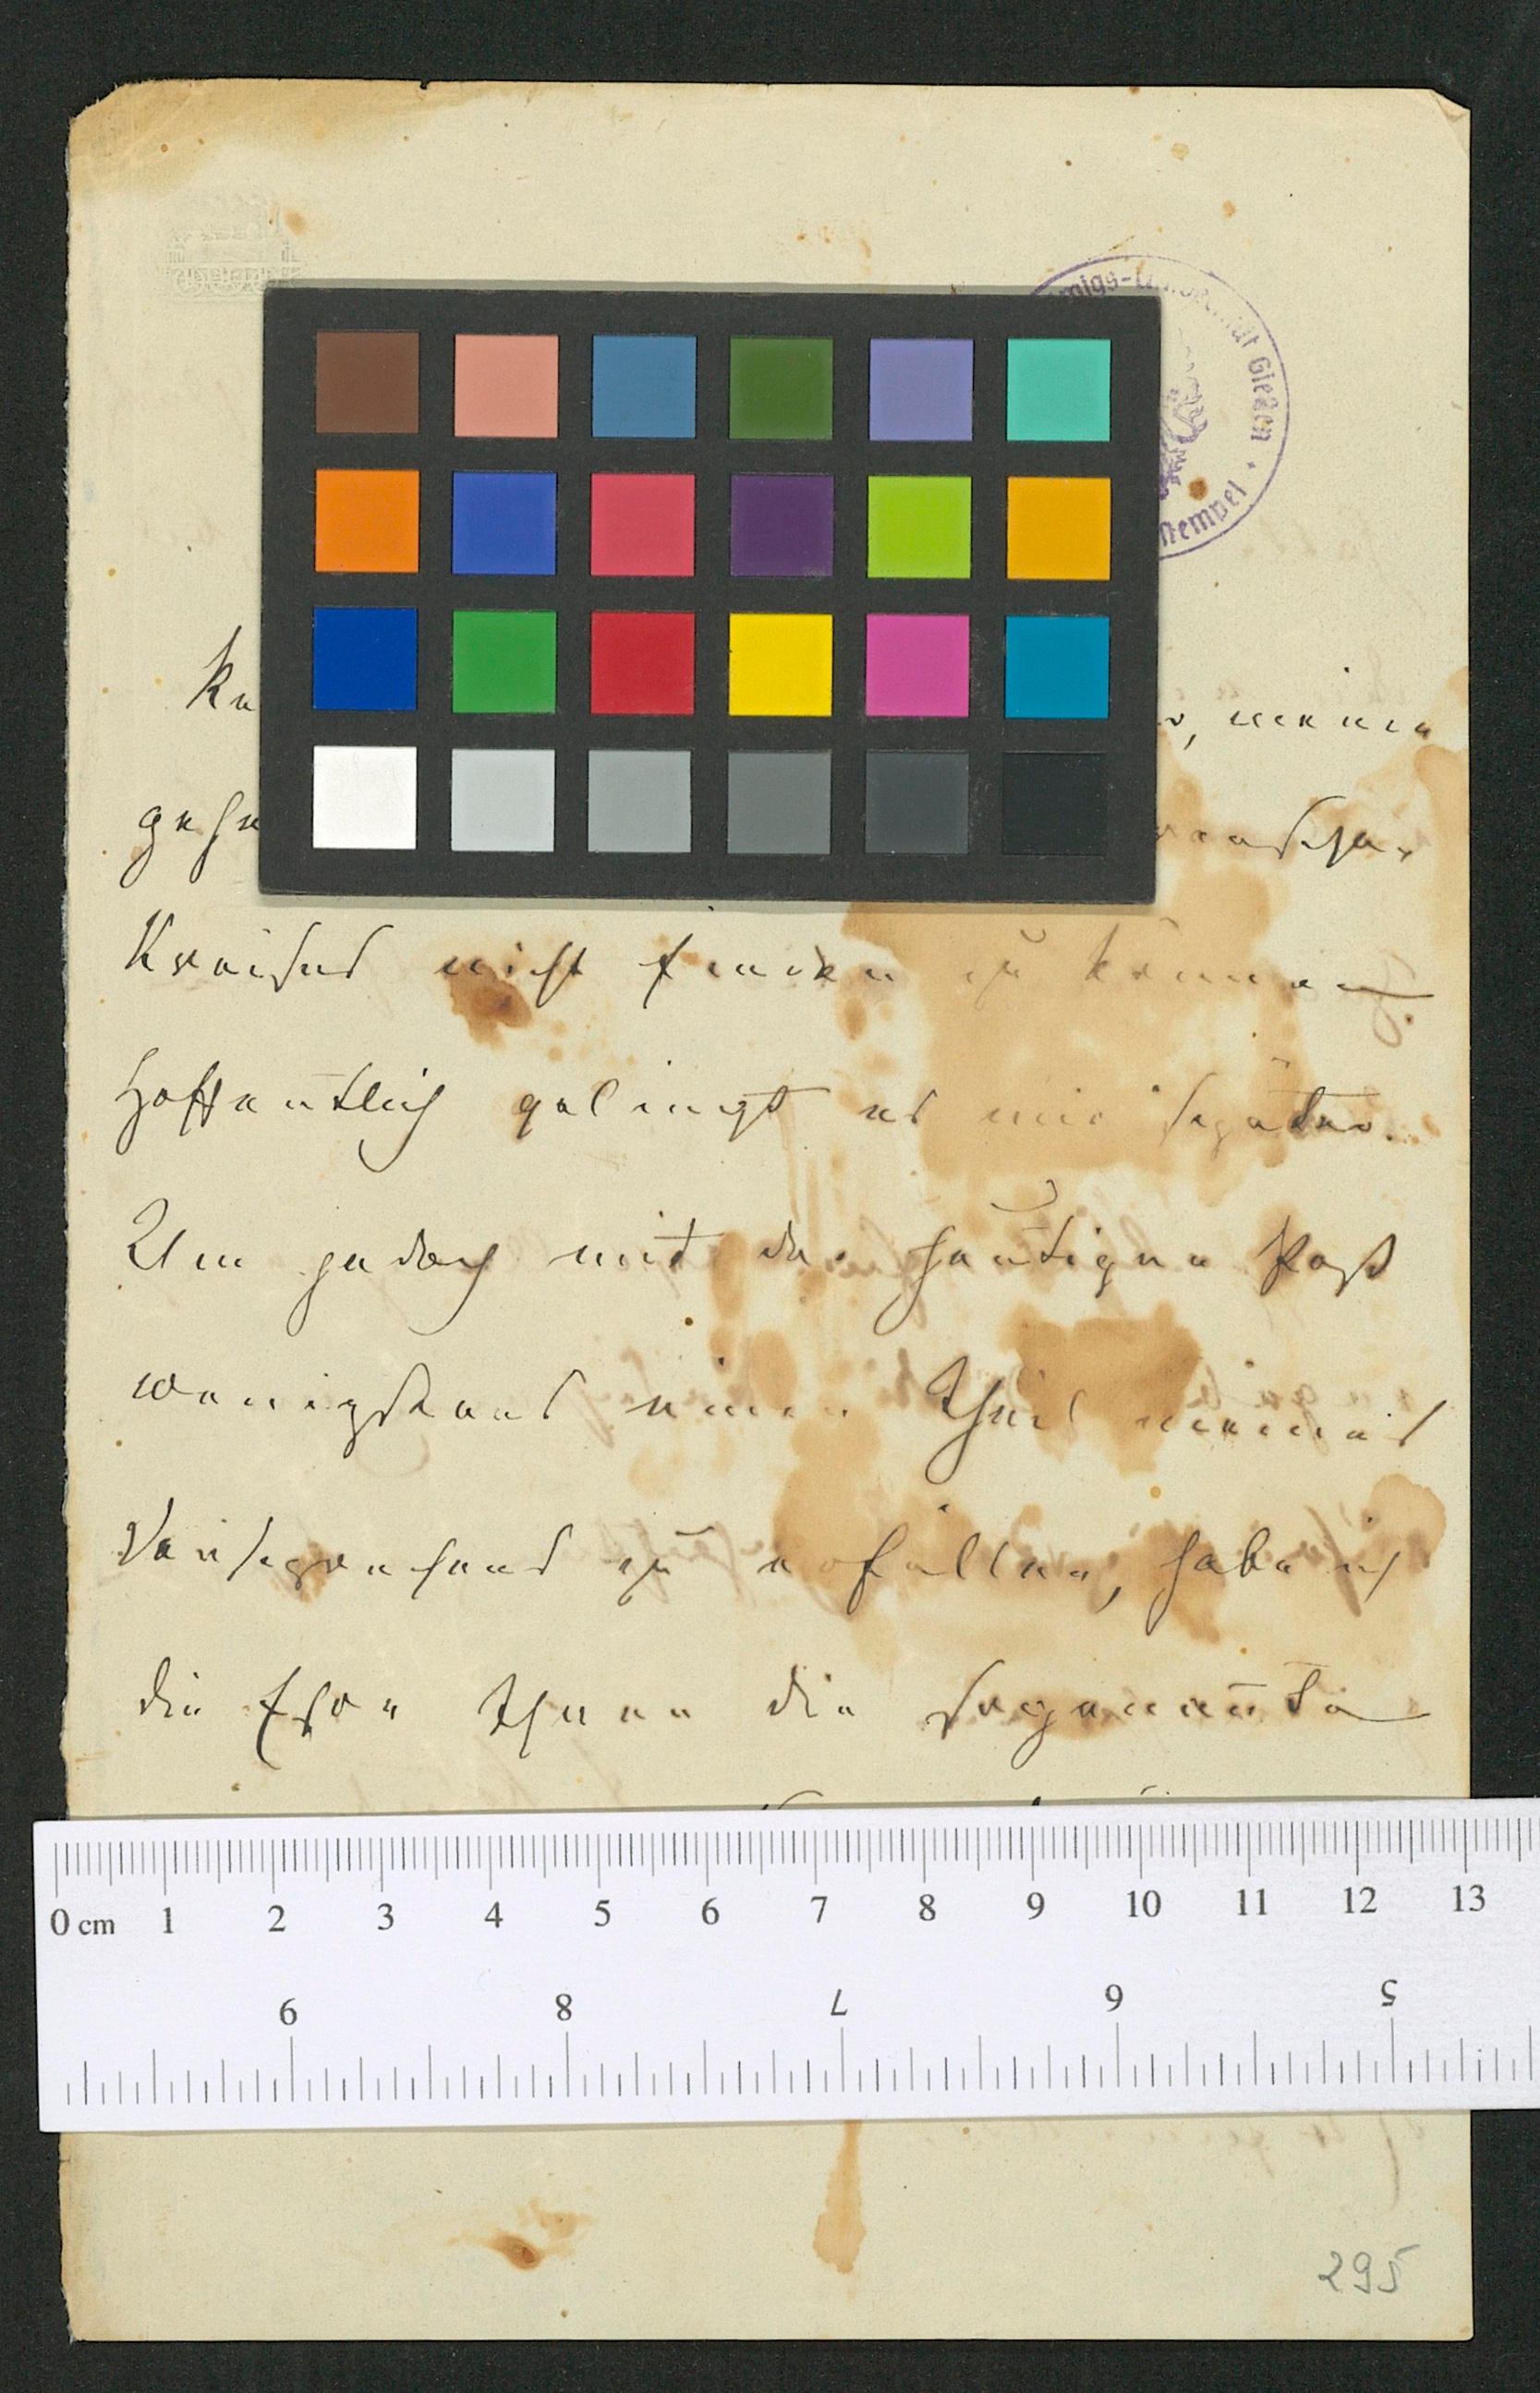 Ludwigs-Universität Gießen
Stempel
, meine
Kreises nicht finden zu können
Hoffentlich gelingt es mir später.
Um jedoch mit der heutigen Post
wenigstens einen Theil meines
Versprechens zu erfüllen, habe ich
die Ehre Ihnen die
0 cm 1 2 3 4 5 6 7 8 9 10 11 12 13
9 8 7 6 5
295